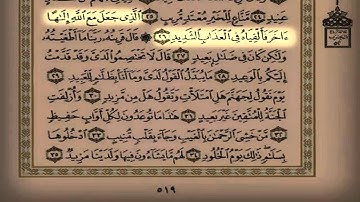 عَنِيدٍ ٢٤ مَّنَّاعٍ لِّلْخَيْرِ مُعْتَدٍ مُّرِيبٍ ٢٥ ٱلَّذِى جَعَلَ مَعَ ٱللَّهِ إِلَٰهًا
ءَاخَرَ فَأَلْقِيَاهُ فِى ٱلْعَذَابِ ٱلشَّدِيدِ ٢٦ ۞ قَالَ قَرِينُهُۥ رَبَّنَا مَآ أَطْغَيْتُهُۥ
وَلَٰكِن كَانَ فِى ضَلَٰلٍۭ بَعِيدٍ ٢٧ قَالَ لَا تَخْتَصِمُوا۟ لَدَىَّ وَقَدْ قَدَّمْتُ
إِلَيْكُم بِٱلْوَعِيدِ ٢٨ مَا يُبَدَّلُ ٱلْقَوْلُ لَدَىَّ وَمَآ أَنَا۠ بِظَلَّٰمٍ لِّلْعَبِيدِ ٢٩
يَوْمَ نَقُولُ لِجَهَنَّمَ هَلِ ٱمْتَلَأْتِ وَتَقُولُ هَلْ مِن مَّزِيدٍ ٣٠ وَأُزْلِفَتِ
ٱلْجَنَّةُ لِلْمُتَّقِينَ غَيْرَ بَعِيدٍ ٣١ هَٰذَا مَا تُوعَدُونَ لِكُلِّ أَوَّابٍ حَفِيظٍ ٣٢
مَّنْ خَشِىَ ٱلرَّحْمَٰنَ بِٱلْغَيْبِ وَجَآءَ بِقَلْبٍ مُّنِيبٍ ٣٣ ٱدْخُلُوهَا
بِسَلَٰمٍ ذَٰلِكَ يَوْمُ ٱلْخُلُودِ ٣٤ لَهُم مَّا يَشَآءُونَ فِيهَا وَلَدَيْنَا مَزِيدٌ ٣٥
٥١٩